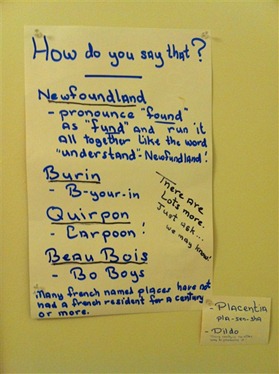 How do you say that?
Newfoundland
- pronounce "found"
as "fund" and run it
all together like the word
"understand" - Newfundland!
Burin
- B-your-in
Quirpon
- Carpoon!
Beau Bois
- Bo Boys
There are
Lots more.
Just ask...
we may know!
Many french named places have not
had a french resident for a century
or more.
- Placentia
pla-sen-sha
- Dildo